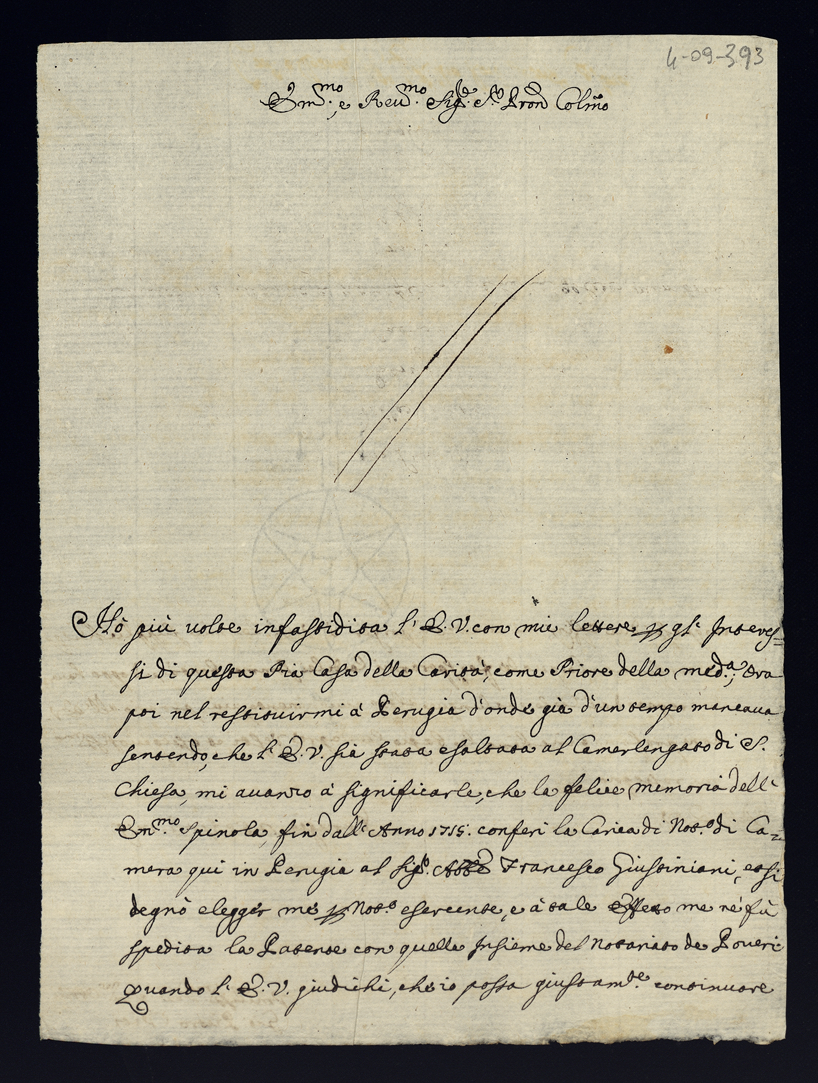 4-09-393
Em.mo e Reu.mo Sig.re S.r Pron Colmo
Hò più uolte infastidita l'E.V. con mie lettere p gl'Interes=
si di questa Pia Casa della Carità, come Priore della med.a; Ora
poi nel restituirmi à Perugia d'onde già d'un tempo mancaua
sentendo, che l'E.V. sia stata esaltata al Camerlengato di S.
Chiesa, mi auanzo à significarle, che la felice memoria dell'
Em.mo Spinola, fin dall'Anno 1715. conferì la Carica di Not.o di Ca=
mera qui in Perugia al Sig.r Abbe Francesco Giustiniani, e si
degnò elegger me p Not.o esercente, e à tale effetto me ne fù
spedita la Patente con quella Insieme del Notariato de Poueri
Quando l'E.V. giudichi, che io possa giustam.te continuare